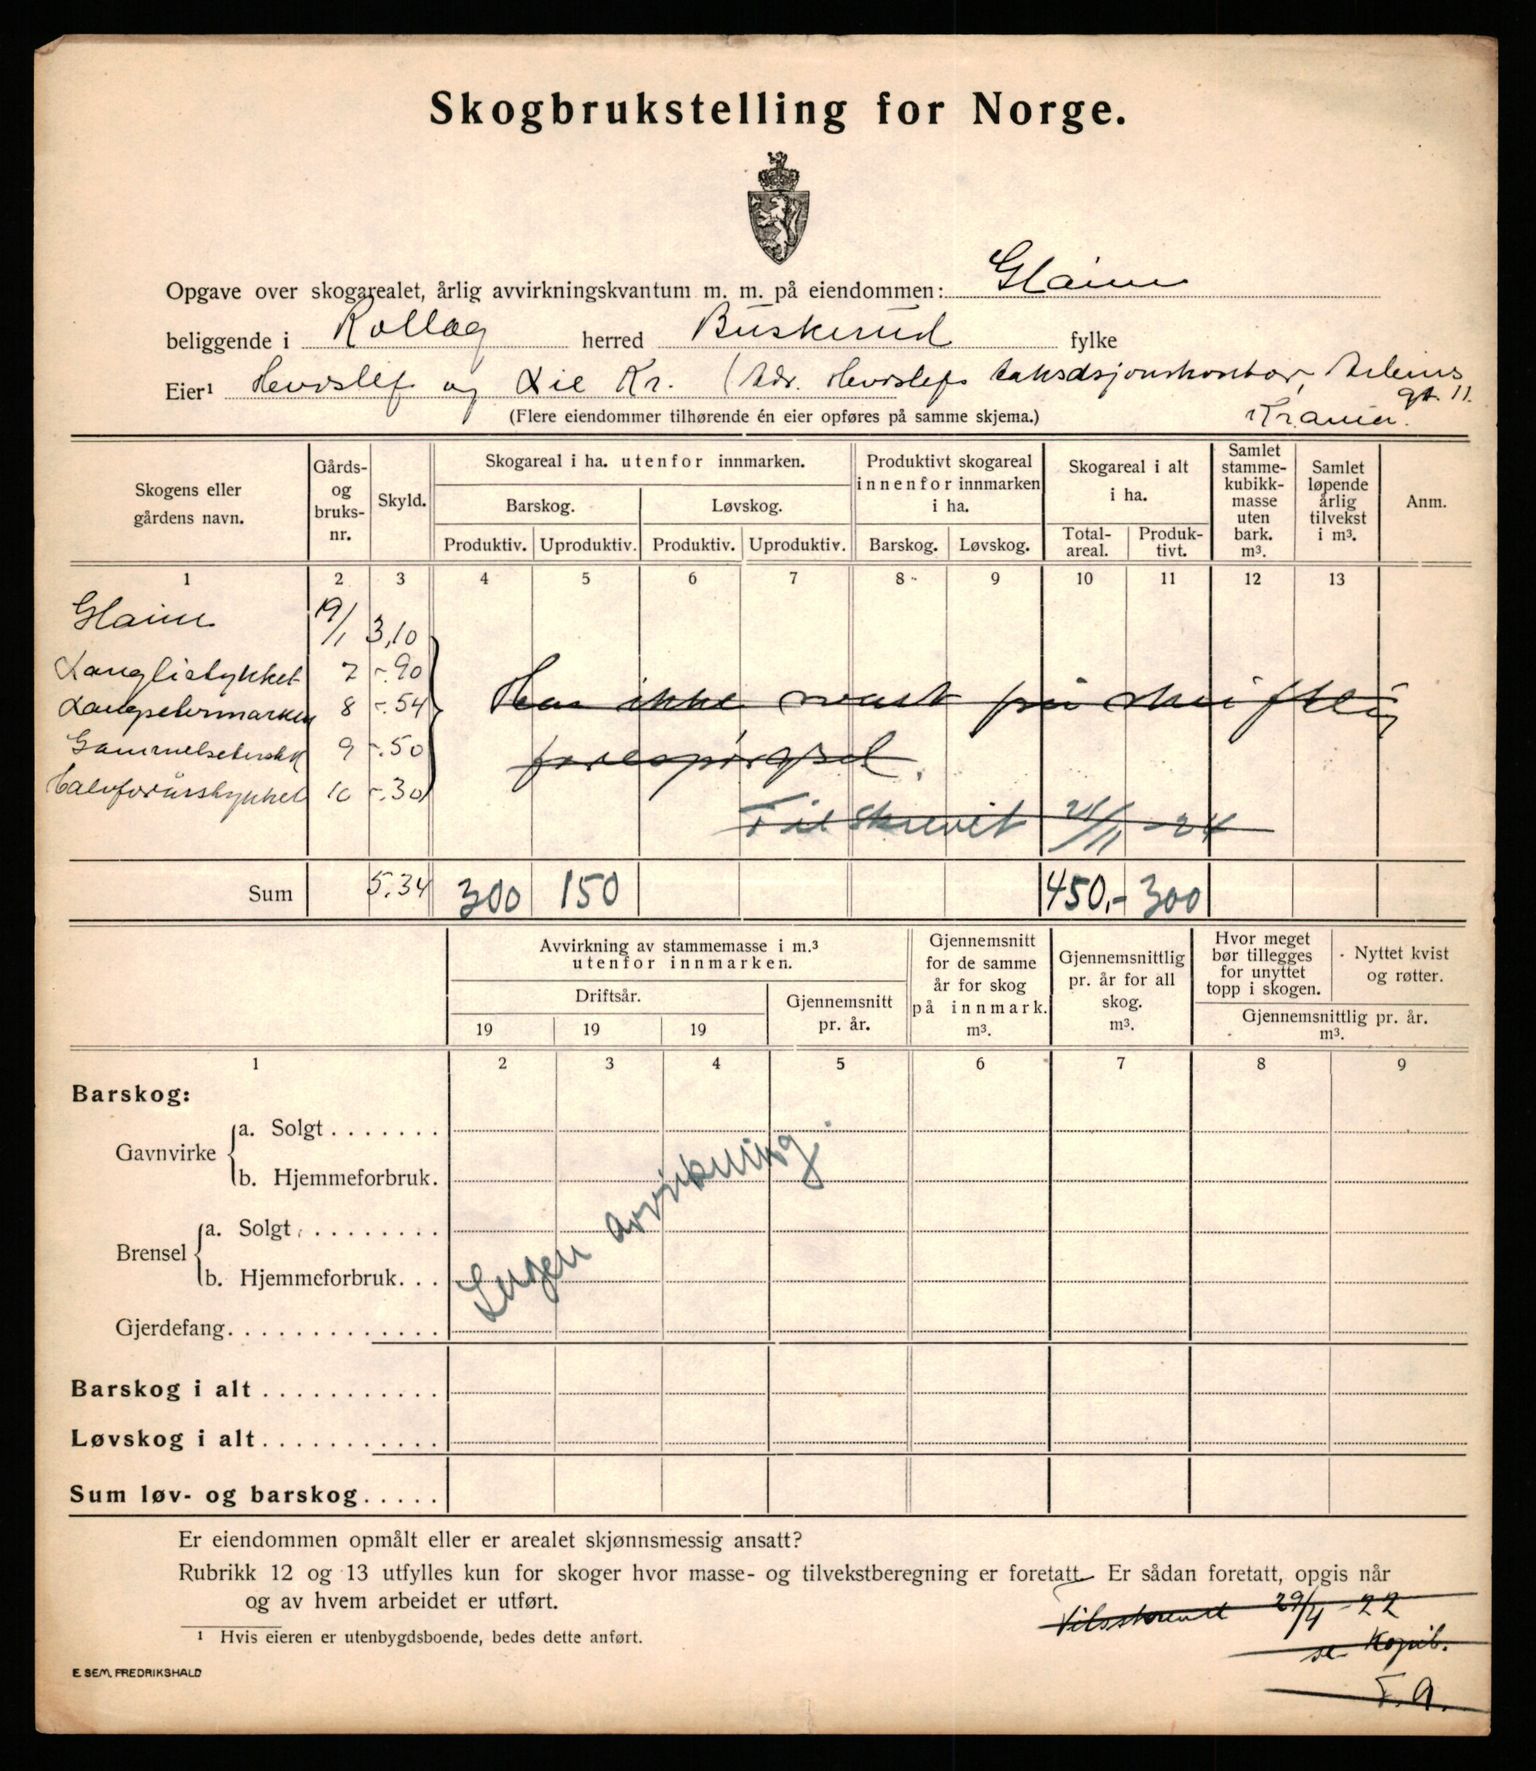 Skogbrukstelling for Norge.
Opgave over skogarealet, årlig avvirkningskvantum m. m. på eiendommen: Glaim
beliggende i Rollag herred Buskerud fylke
Eier¹ og Lie Kr. (Adr.
gt. 11.
(Flere eiendommer tilhørende én eier opføres på samme skjema.)
Skogens eller gårdens navn. Gårds- og bruks- nr. Skyld. Skogareal i ha. utenfor innmarken. Produktivt skogareal innenfor innmarken i ha. Skogareal i alt i ha. Samlet stamme- kubikk- masse uten bark. m³. Samlet løpende årlig tilvekst i m³. Anm.
Barskog. Løvskog.
Produktiv. Uproduktiv. Produktiv. Uproduktiv. Barskog. Løvskog. Total- areal. Produk- tivt.
1 2 3 4 5 6 7 8 9 10 11 12 13
Glaim 19/1 3,10
Langlistykket 7 -.90
Langsetermarken 8 -.54
9 -.50
10 -.30
Har ikke svart på skriftlig
forespørgsel.
Tilskrevit 21/11 -24
Sum 5.34 300 150 450,- 300
Avvirkning av stammemasse i m.³ utenfor innmarken. Gjennemsnitt for de samme år for skog på innmark. m³. Gjennemsnittlig pr. år for all skog. m³. Hvor meget bør tillegges for unyttet topp i skogen. Nyttet kvist og røtter.
Driftsår. Gjennemsnitt pr. år. Gjennemsnittlig pr. år. m³.
19 19 19
1 2 3 4 5 6 7 8 9
Barskog:
Gavnvirke a. Solgt . . . . . . .
b. Hjemmeforbruk.
Brensel a. Solgt . . . . . . . .
b. Hjemmeforbruk. . .
Ingen avvirkning.
Gjerdefang. . . . . . . . . . . . .
Barskog i alt . . . . . . . . . . .
Løvskog i alt . . . . . . . . . . .
Sum løv- og barskog . . . . .
Er eiendommen opmålt eller er arealet skjønnsmessig ansatt?
Rubrikk 12 og 13 utfylles kun for skoger hvor masse- og tilvekstberegning er foretatt. Er sådan foretatt, opgis når
og av hvem arbeidet er utført.
29/4 -22
¹ Hvis eieren er utenbygdsboende, bedes dette anført.
se Kopib.
E. SEM, FREDRIKSHALD